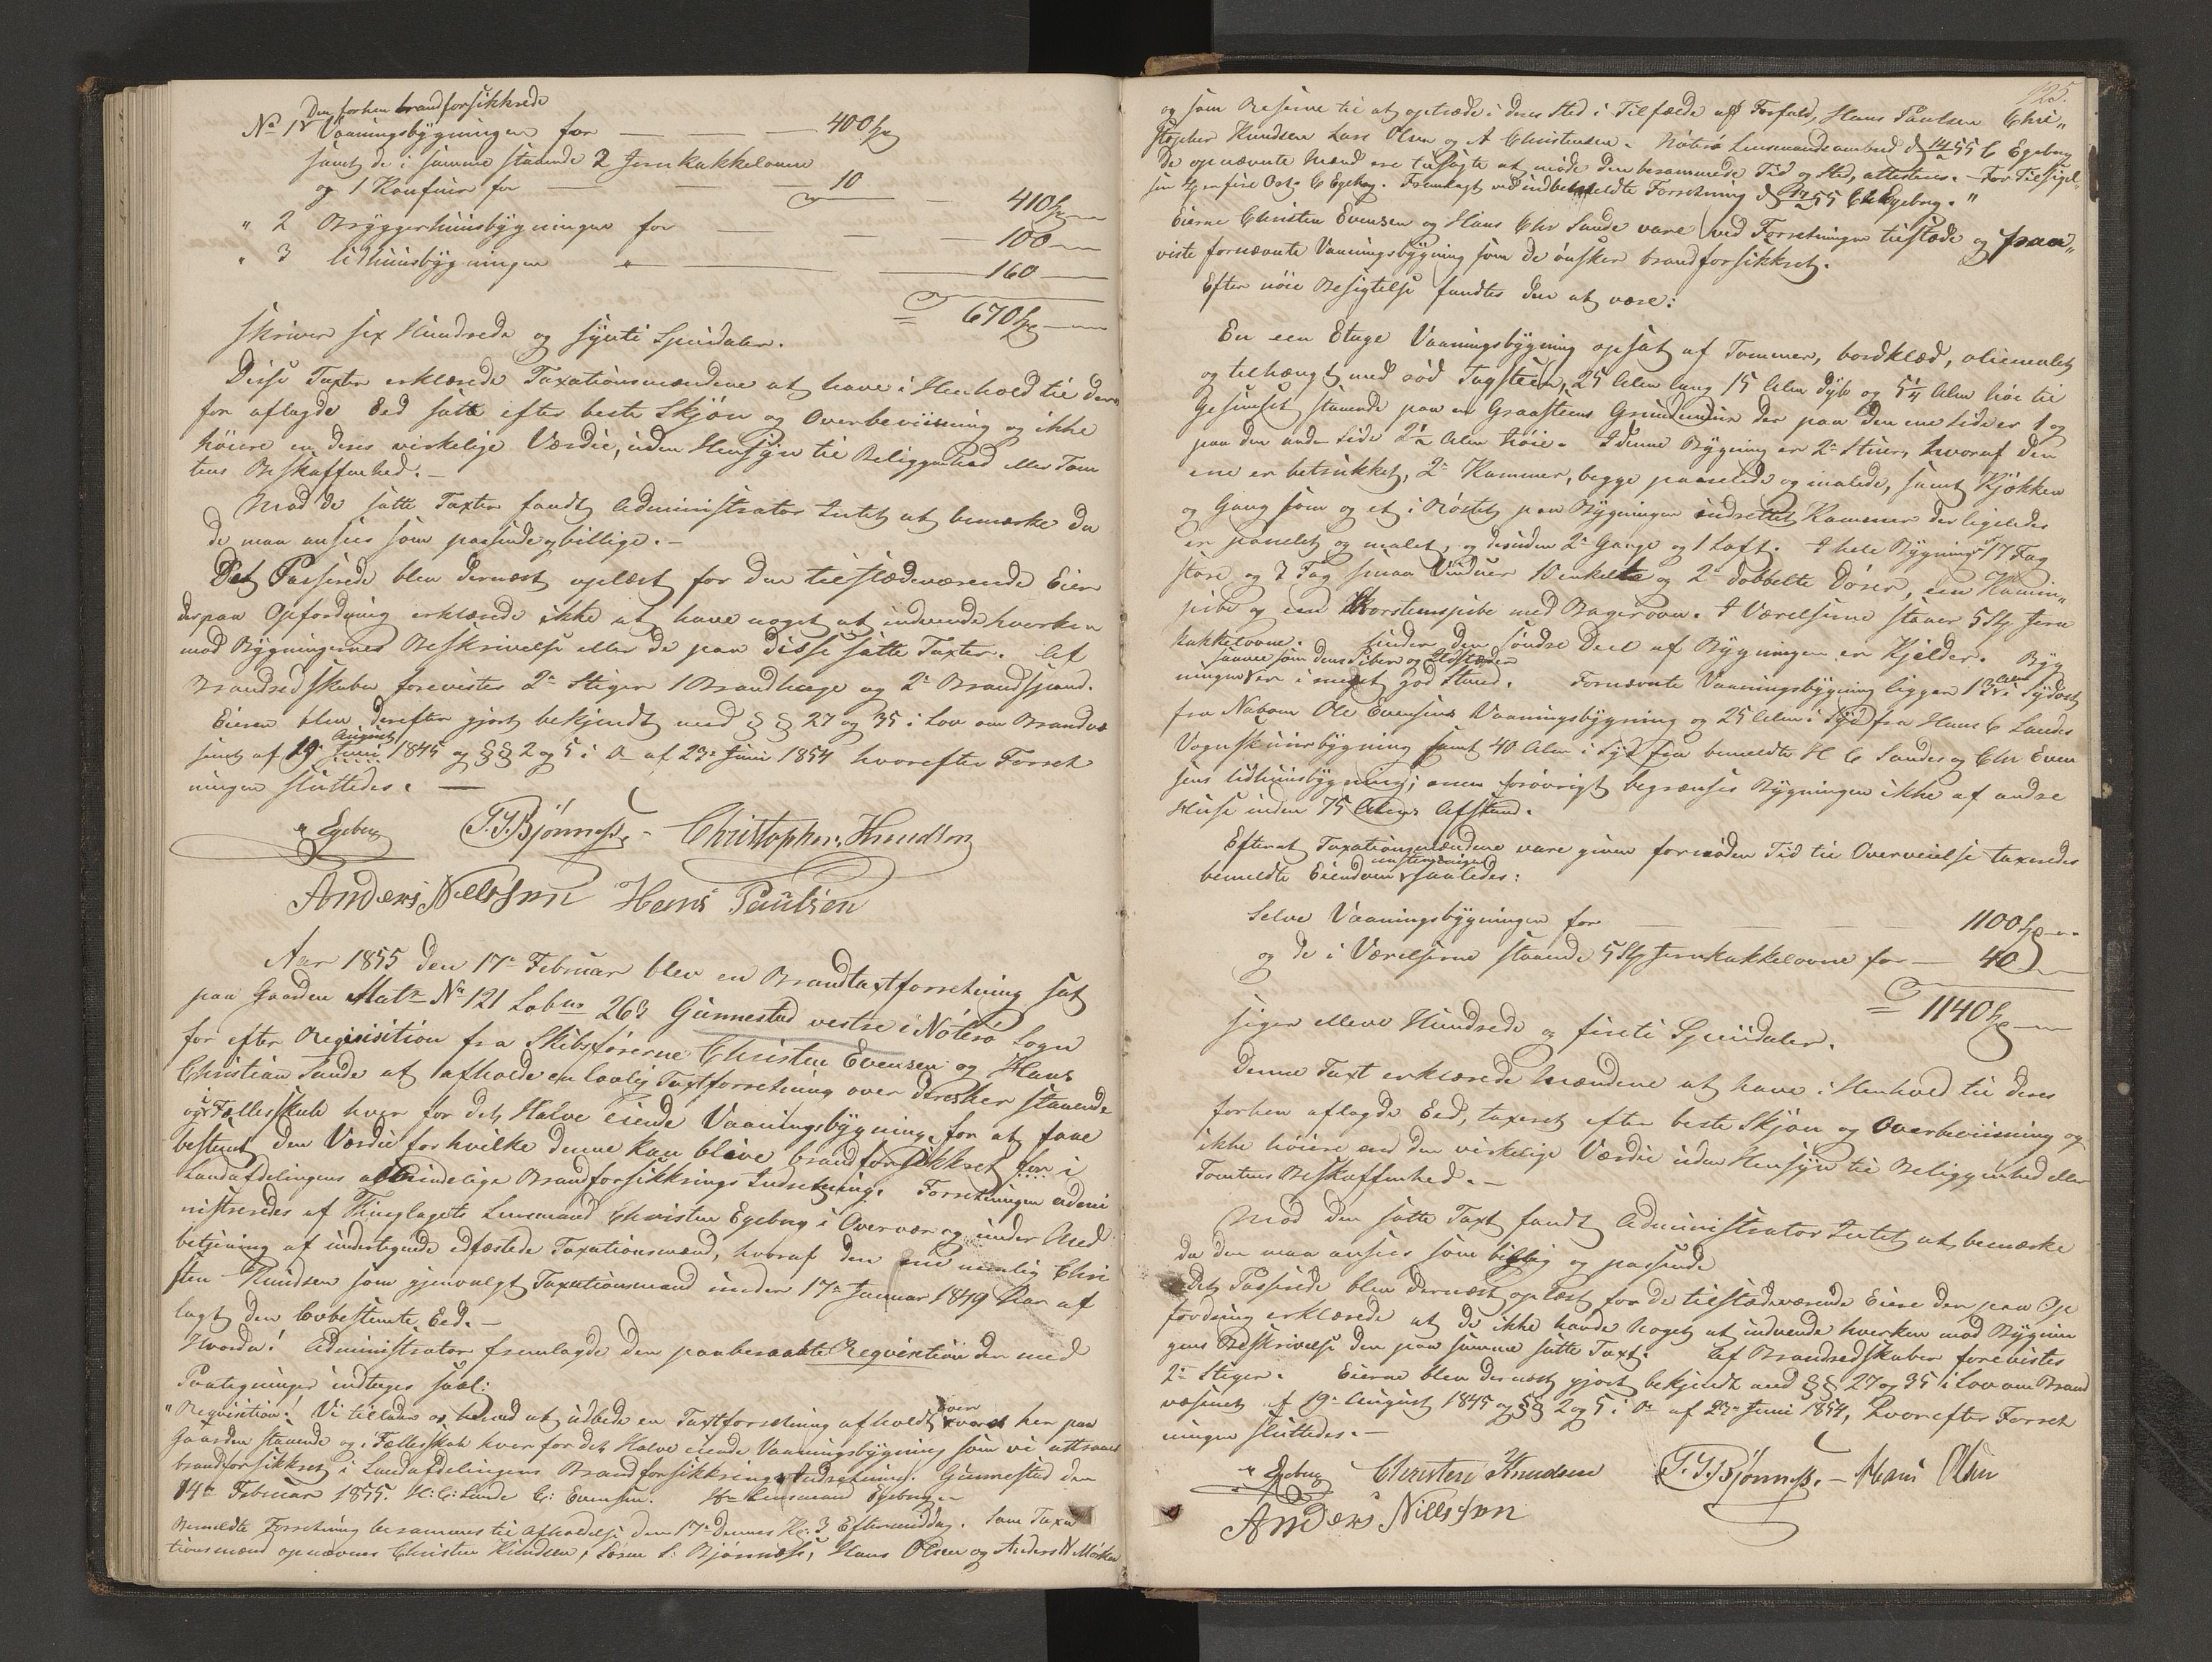 Den forhen brandforsikkrede
No 1 Vaaningsbygningen for — 400 Sp
samt de i samme staaende 2 Jernkakkelovne
og 1 Komfuur for — 10
410 Sp
" 2 Bryggerhuusbygningen for — 100
" 3 Udhuusbygningen " — 160
= 670 Sp
skriver sex Hundrede og sÿvti Speciedaler.
Disse Taxter erklærede Taxationsmændene at have i Henhold til der„
for aflagde Eed satte efter beste Skjøn og Overbeviisning og ikke
høiere en deres virkelige Værdie, uden Hensÿn til Beliggenhed eller Tom
tens Beskaffenhed. —
Mod de satte Taxter fandt Administrator Intet at bemærke da
de maa ansees som passende og billige. —
Det Passerede blev dernæst oplæst for den tilstædeværende Eier
der paa Opfordring erklærede ikke at have noget at indvende hverken
mod Bygningernes Beskrivelse eller de paa disse satte Taxter. Af
Brandredskaber forevistes 2de Stiger 1 Brandhage og 2de Brandspand.
Eieren blev derefter gjort bekjendt med §§ 27 og 35 i Lov om Brandvæ
senet af 19 Juni August 1845 og §§ 2 og 5 i Do af 23de Juni 1854 hvorefter Forret
ningen sluttedes. —
Egeberg T.S. Bjønness. Christopher. Knudsen
Anders Nillssøn Hans Paulsen
Aar 1855 den 17de Februar blev en Brandtaxtforretning sat
paa Gaarden Matr No 121 Løbno 263 Gunnestad vestre i Nøterø Sogn
for efter Reqvisition fra Skibsførerne Christen Evensen og Hans
Christian Sande at afholde en lovlig Taxtforretning over deres her staaende
og i Fællesskab hver for det Halve eiende Vaaningsbygning, for at faae
bestemt den Værdie for hvilke denne kan blive brandforsikkret for i
Landafdelingens almindelige Brandforsikkrings Indretning. Forretningen admi
nistreredes af Thinglagets Lensmand Christen Egeberg i Overvær og under Med
betjening af undertegnede edfæstede Taxationsmænd, hvoraf den ene nemlig Chri
sten Knudsen som gjenvalgt Taxationsmand under 17de Januar 1849 har af
lagt den lovbestemte Eed. —
Hvorda! Administrator fremlagde den paaberaabte Reqvisition der med
Paategninger indtages saal:
"Reqvisition! Vi tillader os herved at udbede en Taxtforretning afholdt over vores her paa
Gaarden staaende og i Fællesskab hver for det Halve eiende Vaaningsbygning som vi attraae
brandforsikkret i Landafdelingens Brandforsikkrings Indretning. Gunnestad den
14de Februar 1855. H: C: Sande C: Evensen. Hr Lensmand Egeberg —
Anmeldte Forretning berammes til Afholdelse den 17de Dennes Kl: 3 Eftermiddag. Som Taxa
tionsmænd opnævnes Christen Knudsen, Søren S: Bjønness, Hans Olsen og Anders N Mørken
125.
og som Reserve til at optræde i deres Sted i Tilfælde af Forfald, Hans Paulsen Chri„
stopher Knudsen Lars Olsen og A Christensen. Nøterø Lensmandsombud d 14/2 55 C Egeberg
De opnævnte Mænd ere tilsagte at møde den berammede Tid og Sted, attesteres. — For Tilsigel„
sen Ort. C Egeberg. Fremlagt ved indbemeldte Forretning d 17/2 55 Ch Egeberg. "
Eierne Christen Evensen og Hans Chr Sande vare ved Forretningen tilstæde og paa„
viste fornævnte Vaaningsbygning som de ønsker brandforsikkret.
Efter nöie Besigtelse fandtes den at være:
En een Etage Vaaningsbygning opsat af Tømmer, bordklæd, oliemalet
og tilhængt med rød Tagsteen, 25 Alen lang 15 Alen dÿb og 5¼ Alen høi til
Gesimset staaende paa en Graasteens Grundmuur der paa den ene Side er 1 og
paa den anden Side 2½ Alen høie. I denne Bygning er 2de Stuer, hvoraf den
ene er betrukket, 2de Kammer, begge paanelede og malede, samt Kjøkken
og Gang som og et i Røstet paa Bygningen indrettet Kammer der ligeledes
er panelet og malet, og desuden 2de Gange og 1 Loft. I hele Bygningen 17 Fag
store og 7 Fag smaa Vinduer 10 enkelte og 2de dobbelte Dører, een Kamin„
pibe og een Skorsteenspibe med Bagerovn. I Værelserne staaer 5 Stk Jern
kakkelovne. Under den søndre Deel af Bygningen er Kjelder. Byg
saavel som dens Piber og Ildsteder
ningen er i meget god Stand. Fornævnte Vaaningsbygning ligger 13 Alen i Sydost
fra Naboen Ole Evensens Vaaningsbygning og 25 Alen i Syd fra Hans C Sandes
Vognskuursbygning samt 40 Alen i Syd fra bemeldte H C Sandes og Chr Even
sens Udhuusbygning; men forøvrigt begrændses Bygningen ikke af andre
Huse inden 75 Alens Afstand.
Efterat Taxationsmændene vare given fornøden Tid til Overveielse taxeredes
bemeldte Eiendom saaledes:
Selve Vaaningsbygningen for — 1100 Sp
og de i Værelserne staaende 5 Stk Jernkakkelovne for — 40
= 1140 Sp
siger elleve Hundrede og firti Speciedaler.
Denne Taxt erklærede Mændene at have i Henhold til deres
forhen aflagde Eed, taxeret efter beste Skjøn og Overbeviisning og
ikke høiere end den virkelige Værdie uden Hensÿn til Beliggenhed eller
Tomtens Beskaffenhed. —
Mod den satte Taxt fandt Administrator Intet at bemærke
da den maa ansees som billig og passende
Det Passerede blev dernæst oplæst for de tilstædeværende Eiere der paa Op
fordring erklærede at de ikke havde Noget at indvende hverken mod Bygnin
gens Beskrivelse den paa samme satte Taxt. Af Brandredskaber forevistes
2de Stiger. Eierne blev dernæst gjort bekjendt med §§ 27 og 35 i Lov om Brand
væsenet af 19de August 1845 og §§ 2 og 5 i Do af 23de Juni 1854, hvorefter Forret
ningen sluttedes. —
Egeberg Christen Knudsen T.S. Bjønness. — Hans Olsen
Anders Nillssøn